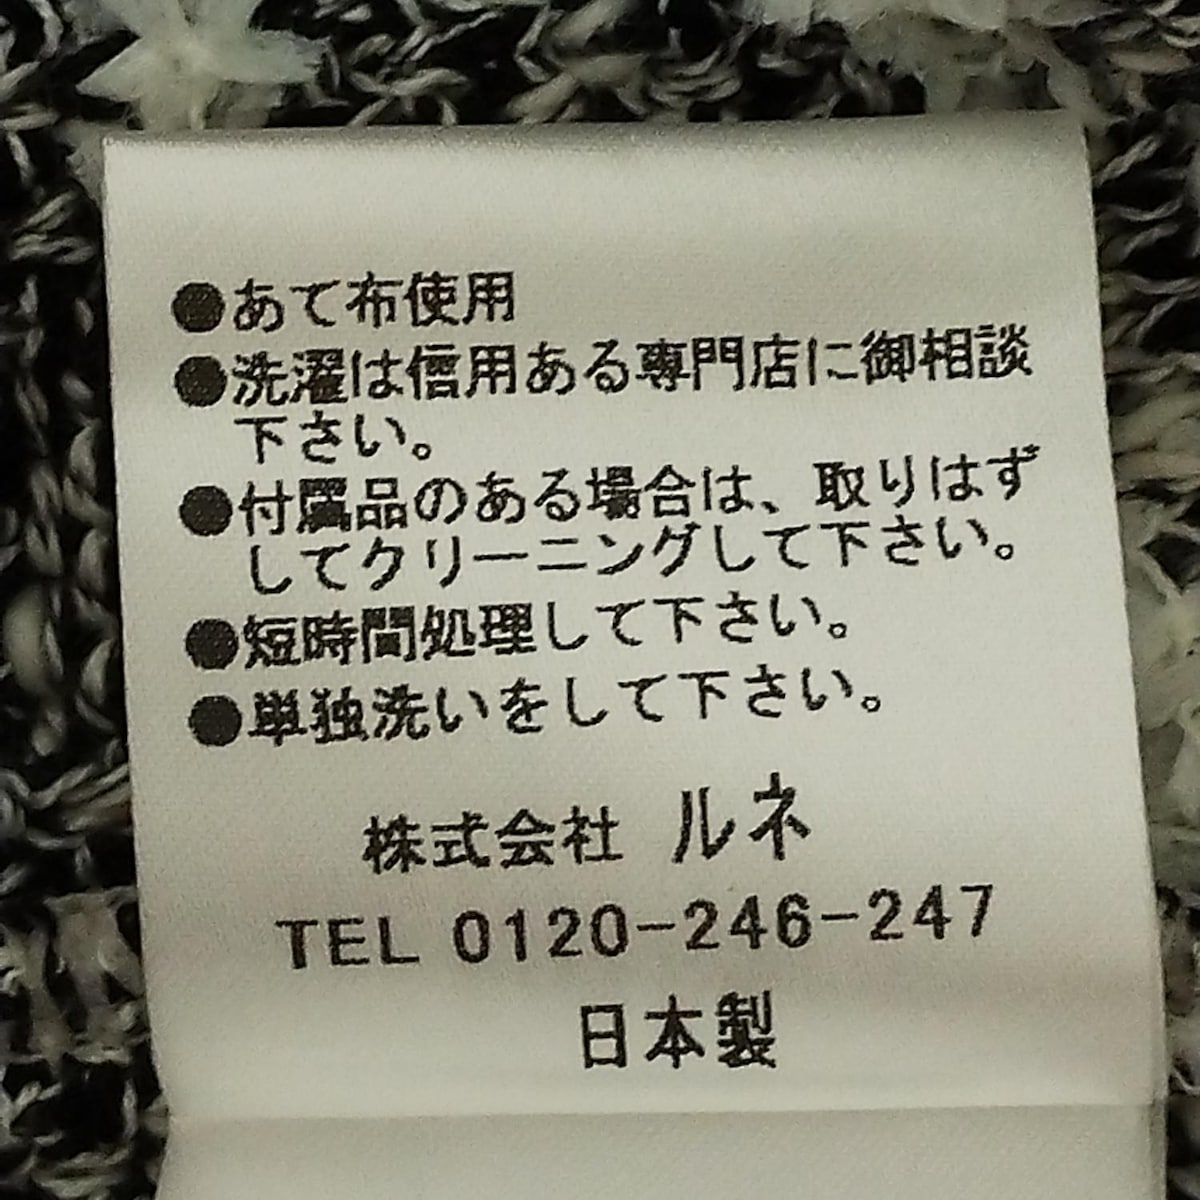 ●あて布使用
●洗濯は信用ある専門店に御相談
下さい。
●付属品のある場合は、取りはず
してクリーニングして下さい。
●短時間処理して下さい。
●単独洗いをして下さい。
株式会社 ルネ
TEL 0120-246-247
日本製